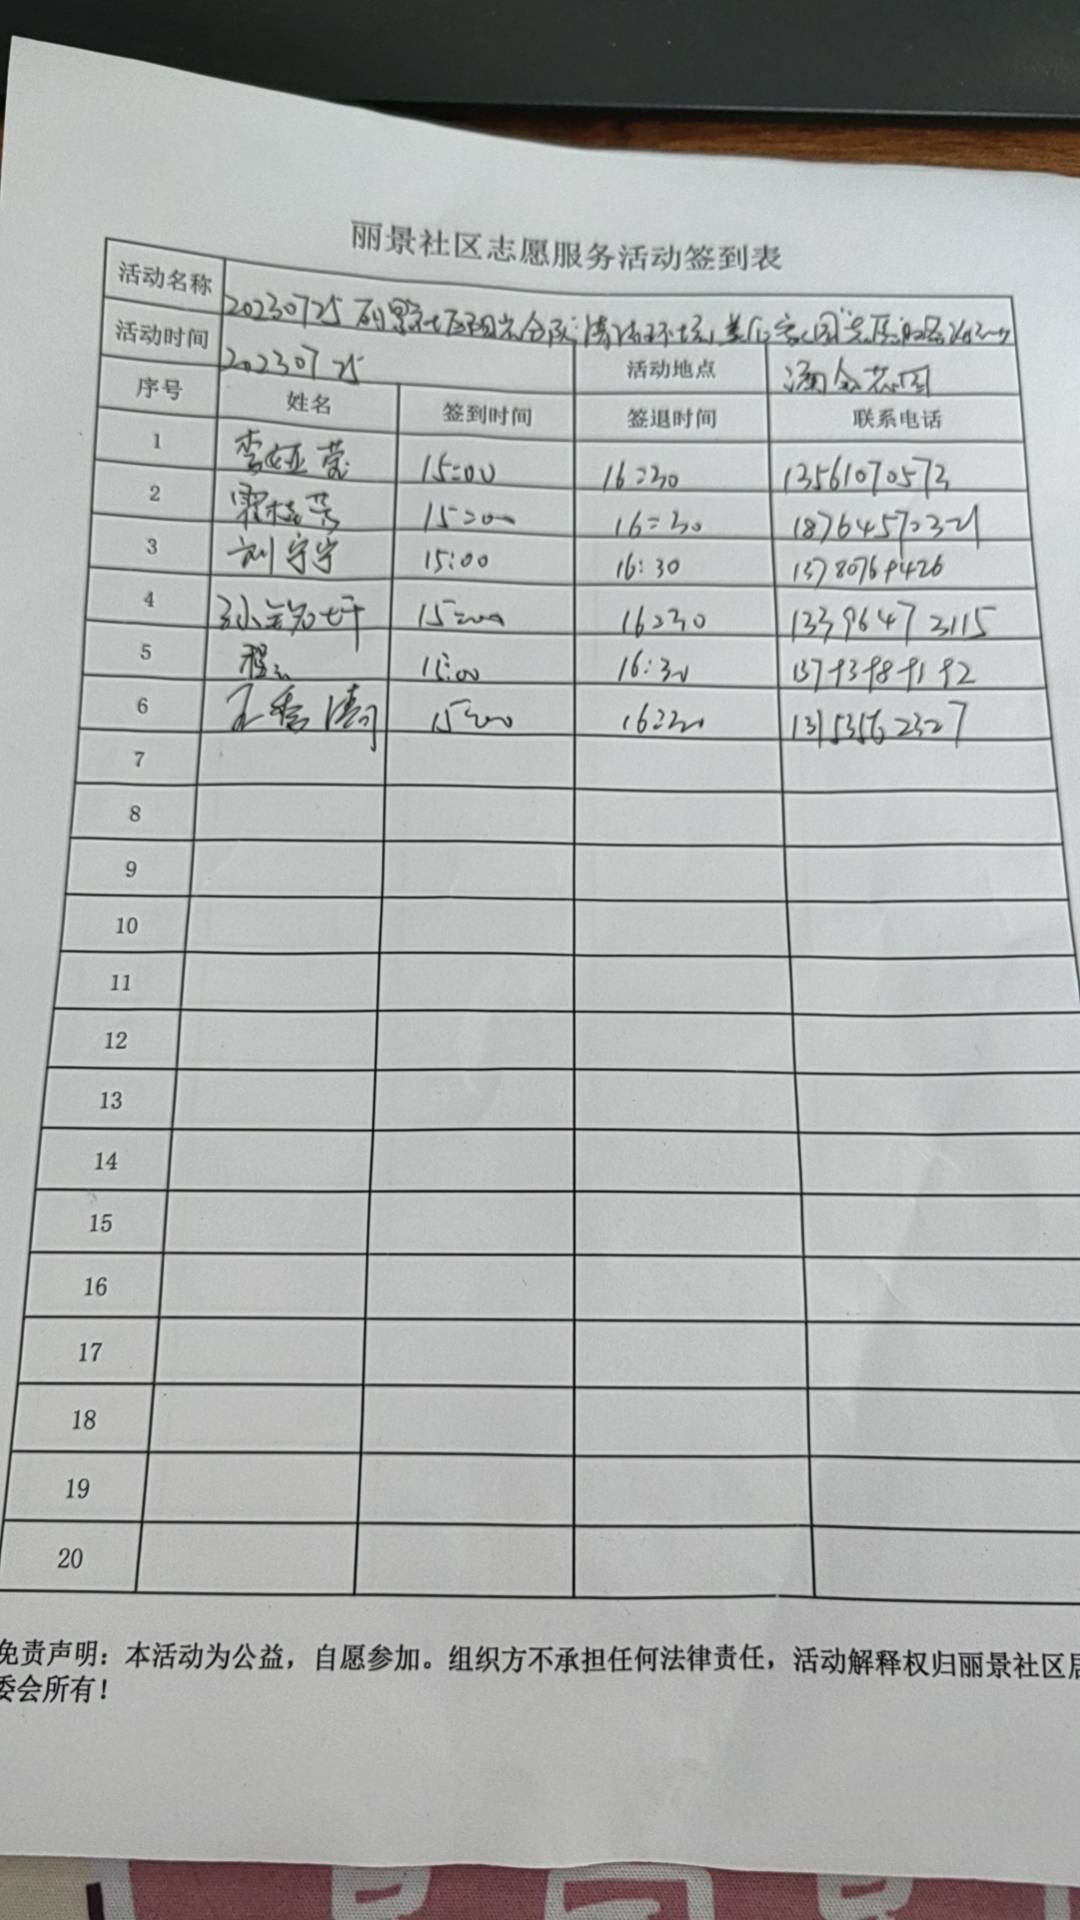 丽景社区志愿服务活动签到表
活动名称 20230725 丽景社区阳光分队"清洁环境,美化家园"志愿服务活动
活动时间 20230725 活动地点 花园
序号 姓名 签到时间 签退时间 联系电话
1 李娅莹 15:00 16:30 13561070573
2 霍桂芳 15:00 16:30
3 刘宁宁 15:00 16:30
4 15:00 16:30 13396473115
5 程 15:00 16:30
6 王秀清 15:00 16:30 13153562327
7
8
9
10
11
12
13
14
15
16
17
18
19
20
免责声明:本活动为公益,自愿参加。组织方不承担任何法律责任,活动解释权归丽景社区居
委会所有!